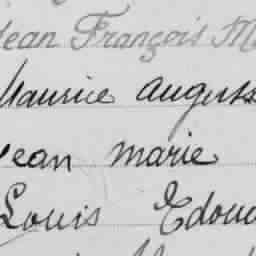 Jean François M
Maurice August
Jean Marie
Louis Edoua